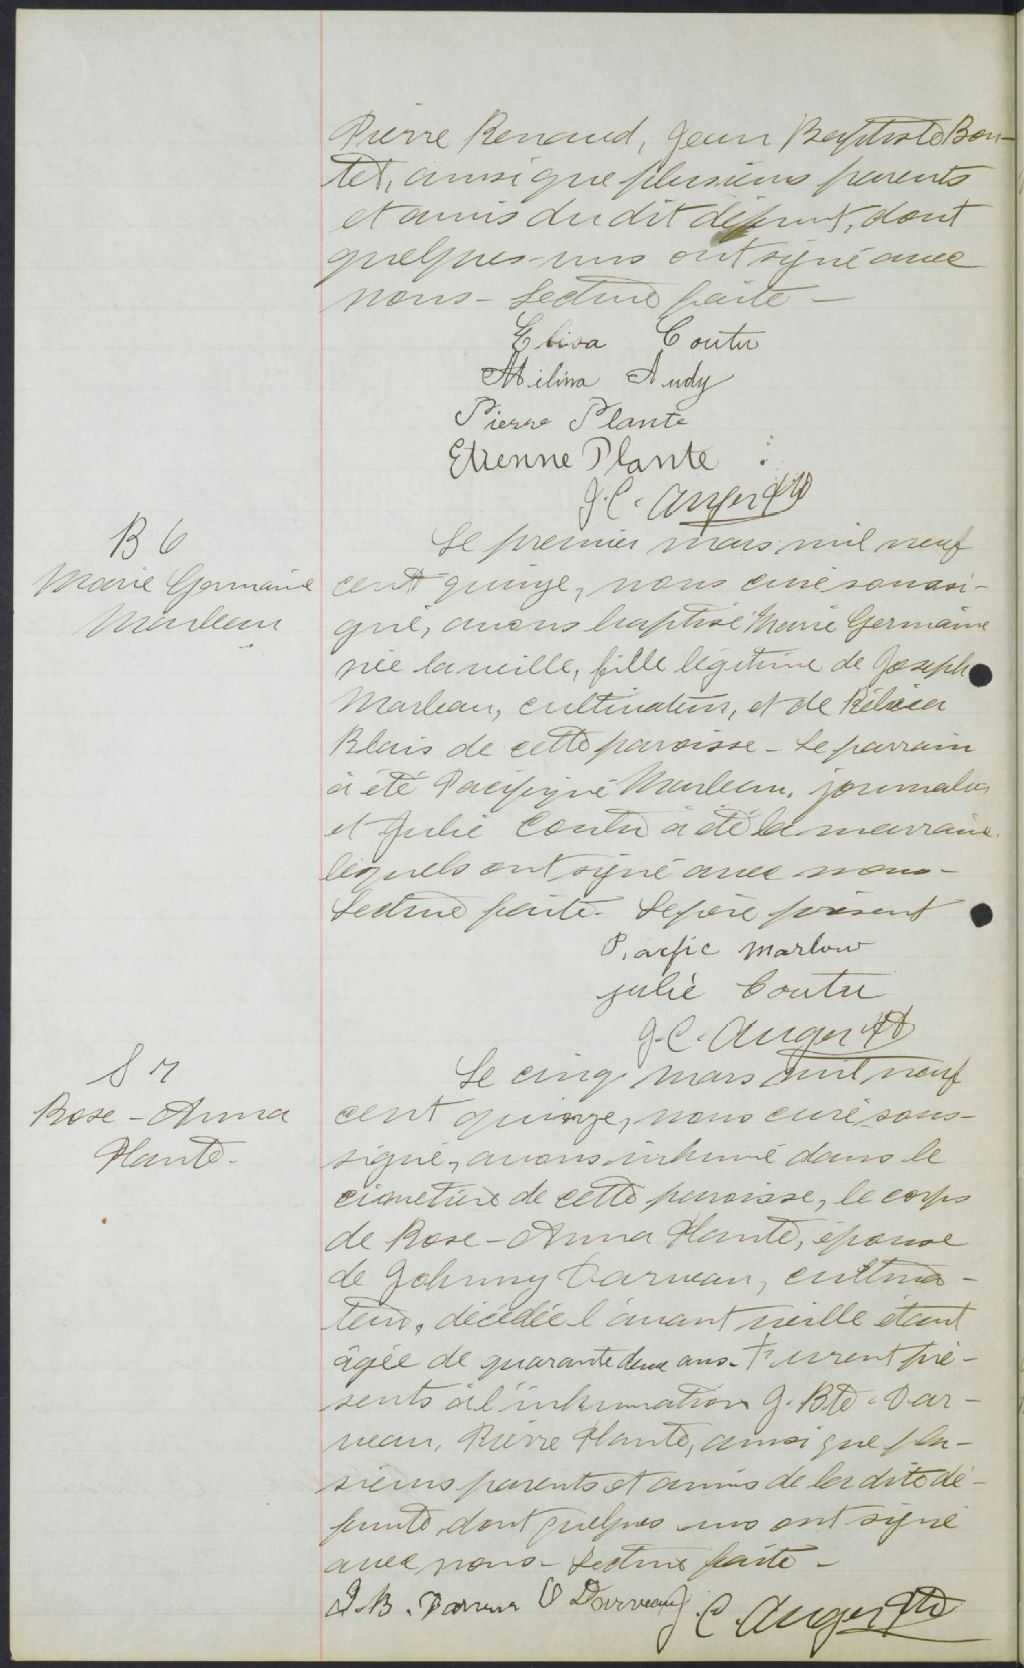 Pierre Renaud, Jean Baptiste Bou-
tet, ainsi que plusieurs parents
et amis du dit défunt, dont
quelques-uns ont signé avec
nous - Lecture faite -
Elisa Coutu
Mélina Audy
Pierre Plante
Etienne Plante
J. C. Auger Ptre
B 6
Marie Germaine
Marleau
Le premier mars mil neuf
cent quinze, nous curé soussi-
gné, avons baptisé Marie Germaine
née la veille, fille légitime de Joseph
Marleau, cultivateur, et de
Blais de cette paroisse - Le parrain
a été Pacifique Marleau, journalier
et Julie Coutu a été la marraine
lesquels ont signé avec nous -
Lecture faite - Le père présent
Pacific Marlow
julie Coutu
J. C. Auger Ptre
S 7
Rose - Anna
Plante -
Le cinq mars mil neuf
cent quinze, nous curé sous-
signé, avons inhumé dans le
cimetière de cette paroisse, le corps
de Rose - Anna Plante, épouse
de Johnny Darveau, cultiva-
teur, décédée l'avant veille étant
âgée de quarante deux ans. Furent pré-
sents à l'inhumation J. Bte Dar-
veau, Pierre Plante, ainsi que plu-
sieurs parents et amis de la dite dé-
funte dont quelques uns ont signé
avec nous - Lecture faite -
J. B. Darveau O Darveau J. C. Auger Ptre